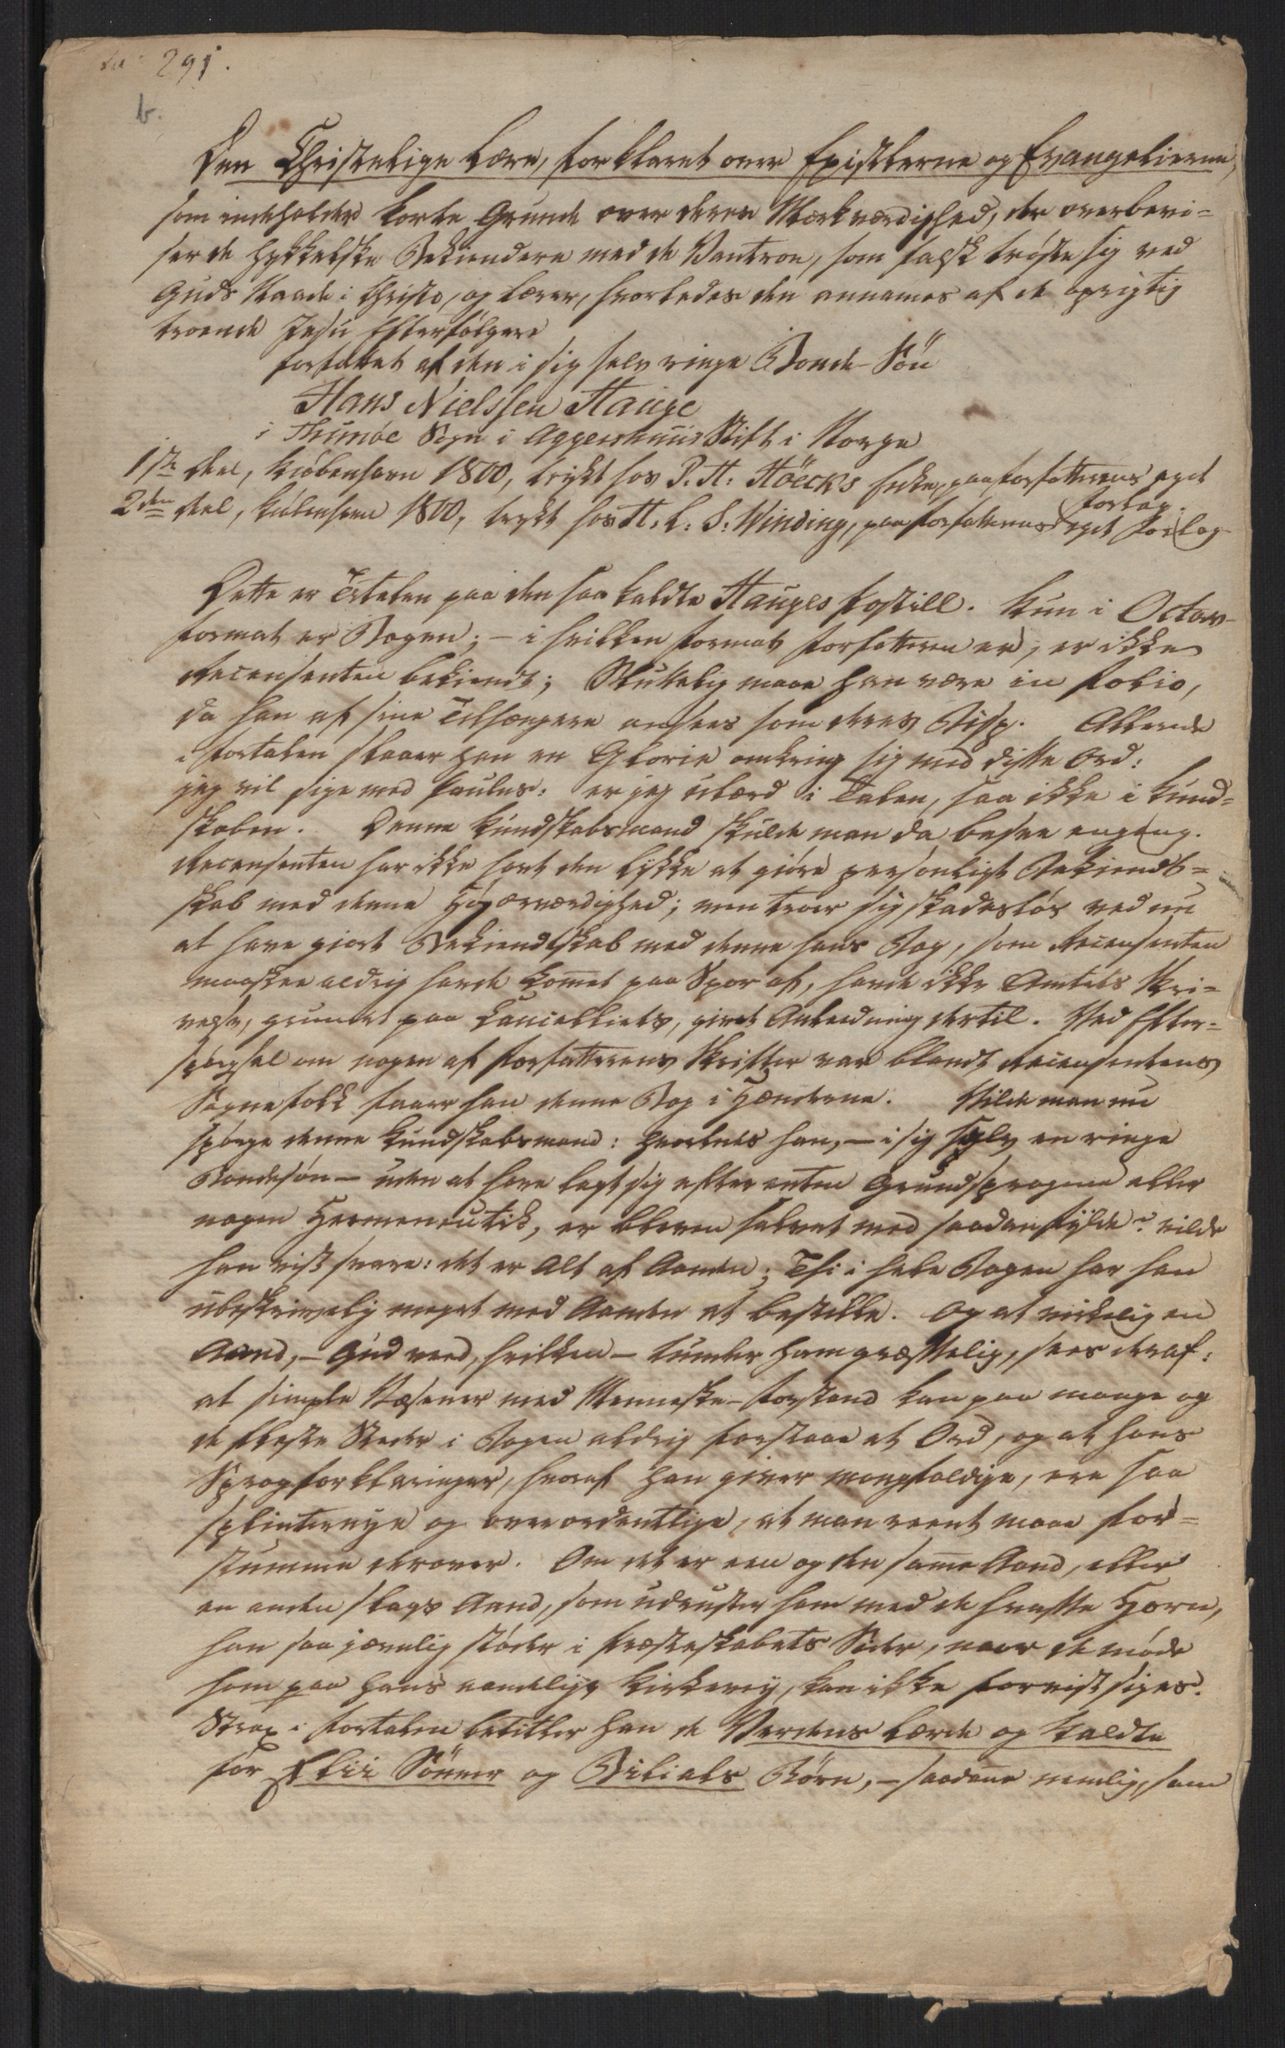 291.
b.
Den Christelige Lære, forklaret over Epistlerne og Evangelierne,
som indeholder korte Grunde over deres Mærkværdighed, der overbevi-
ser de hykkelske Bekiendere med de Vantroe, som falsk trøste sig ved
Guds Naade i Christo, og lærer, hvorledes den annames af de oprigtig
troende Jesu Efterfølgere
forfattet af den i sig selv ringe Bonde-Søn
Hans Nielssen Hauge
i Thunøe Sogn i Aggershuus Stift i Norge
1ste Deel, Kiøbenhavn 1800, trykt hos P. H. Höecks Enke, paa Forfatterens eget
Forlag.
2den Deel, Kiøbenhavn 1800, trykt hos H. L. S. Winding, paa Forfatterens eget Forlag
Dette er Titelen paa den saa kaldte Hauges Postill. Kun i Octav-
format er Bogen; – i hvilken Format Forfatteren er, er ikke
Recensenten bekiendt; Rimelig maae han være in folio,
da han af sine Tilhængere ansees som deres Bisp. Allerede
i Fortalen slaaer han en Glorie omkring sig med disse Ord:
jeg vil sige med Paulus: er jeg ulærd i Talen, saa ikke i Kund-
skaben. Denne Kundskabsmand skulde man da besee engang.
Recensenten har ikke havt den Lykke at giøre personligt Bekiendt-
skab med denne Højærværdighed; men troer sig skadesløs ved nu
at have giort Bekiendtskab med denne hans Bog, som Recensenten
maaskee aldrig havde kommet paa Spor af, havde ikke Amtets Skri-
velse, grundet paa Cancelliets, givet Anledning dertil. Ved Efter-
spørgsel om nogen af Forfatterens Skrifter var blandt Recensentens
Sognefolk faaer han denne Bog i Hænderne. Vilde man nu
spørge denne Kundskabsmand: hvorledes han, – i sig selv en ringe
Bondesøn – uden at have lagt sig efter enten Grundsprogene eller
nogen Hermeneutik, er bleven salvet med saadan Fylde? vilde
han vist svare: det er Alt af Aanden; Thi i hele Bogen har han
ubeskrivelig meget med Aanden at bestille. Og at virkelig en
Aand, – Gud veed, hvilken – tumler ham græsselig, sees deraf:
at simple Væsener med Menneske-Forstand kan paa mange og
de fleste Steder i Bogen aldrig forstaae et Ord, og at hans
Sprogforklaringer, hvoraf han giver mangfoldige, ere saa
splinternye og overordentlige, at man reent maae for-
stumme derover. Om det er een og den samme Aand, eller
en anden slags Aand, som udruster ham med de hvasse Horn,
han saa jævnlig støder i Præsteskabets Sider, naar de møde
ham paa hans aandelige Kirkevej, kan ikke forvist siges.
Strax i Fortalen betitler han de Verdens Lærde og kaldte
for Elii Sønner og Belials Børn, – saadane nemlig, som